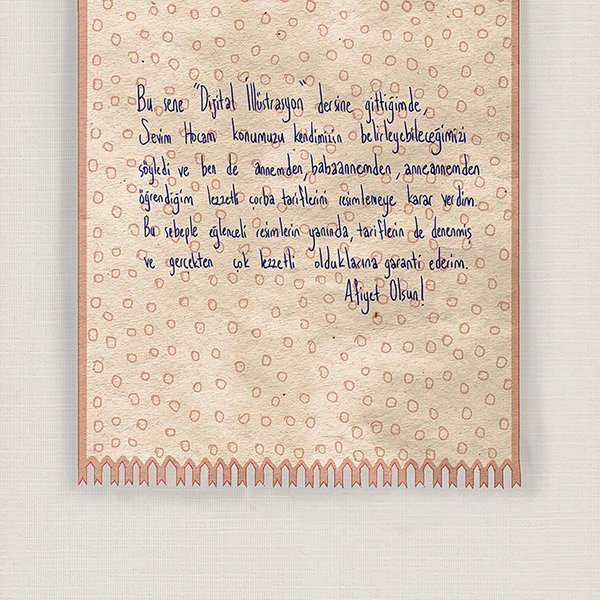 Bu sene "Dijital İllüstrasyon" dersine gittiğimde,
Sevim Hocam konumuzu kendimizin belirleyebileceğimizi
söyledi ve ben de annemden, babaannemden, anneannemden
öğrendiğim lezzetli çorba tariflerini resimlemeye karar verdim.
Bu sebeple eğlenceli resimlerin yanında, tariflerin de denenmiş
ve gerçekten çok lezzetli olduklarına garanti ederim.
Afiyet Olsun!